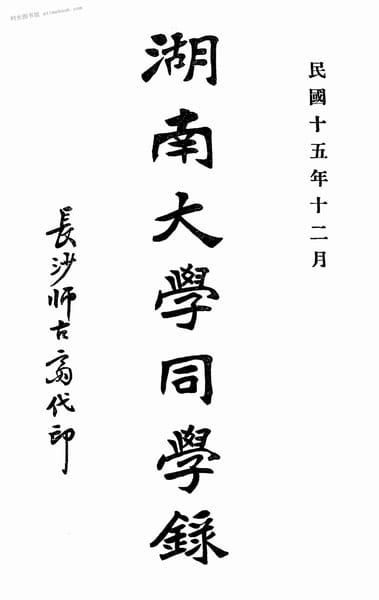 民國十五年十二月
湖南大學同學錄
長沙師古齋代印